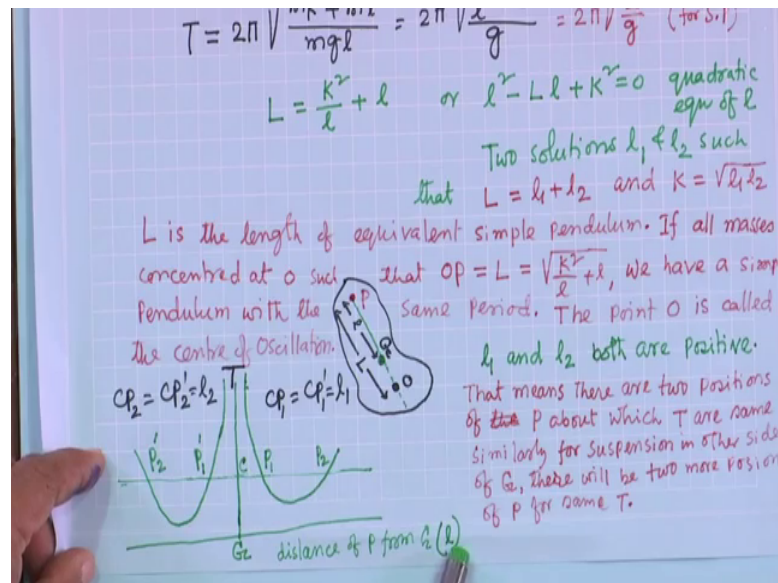 T = 2π√(mk² + ml²/mgl) = 2π√(l/g) = 2π√(/g) (for S.P)
L = K²/l + l or l² - Ll + K² = 0 quadratic
eqn of l
Two solutions l₁ & l₂ such
that L = l₁ + l₂ and K = √l₁l₂
L is the length of equivalent simple pendulum. If all masses
concentred at O such that OP = L = √(K²/l + l), we have a simp
Pendulum with the same period. The point O is called
the centre of Oscillation.
P
l
L
G
O
l₁ and l₂ both are positive.
CP₂ = CP₂' = l₂ T CP₁ = CP₁' = l₁
That means there are two positions
of P about which T are same
Similarly for suspension in other side
of G, there will be two more Posion
of P for same T.
P₂' P₁' C P₁ P₂
G distance of P from G (l)